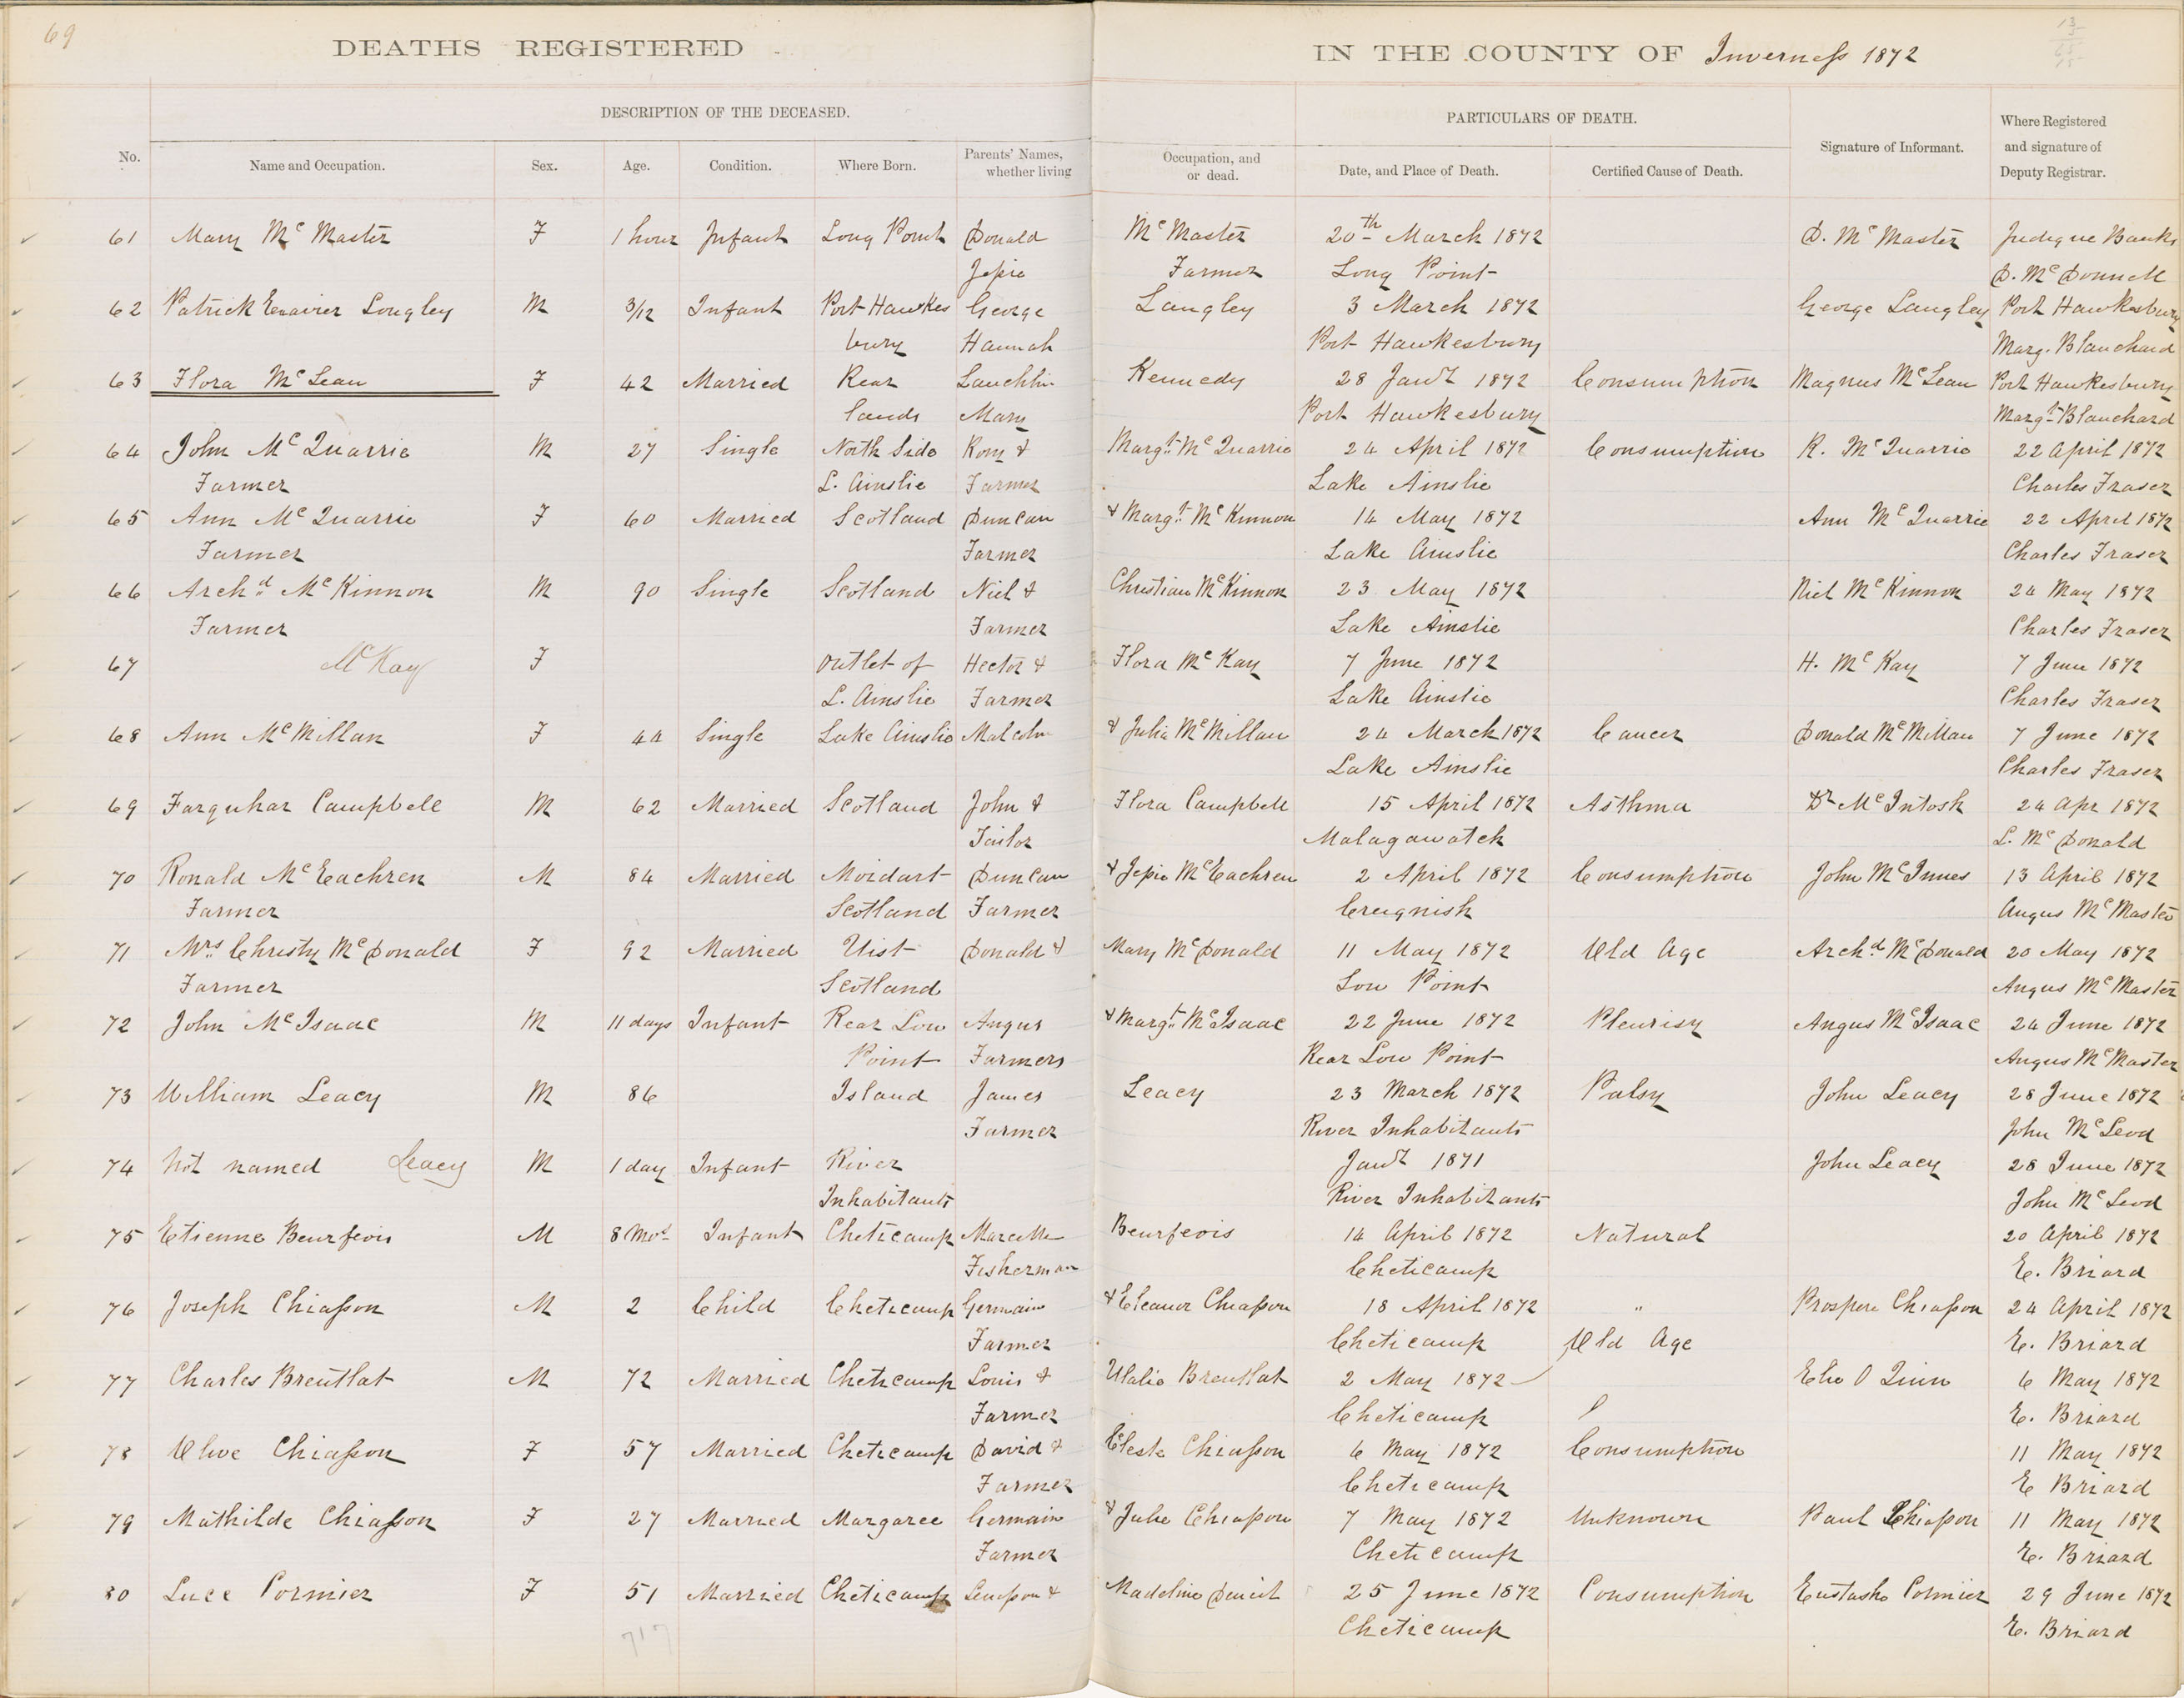 69
DEATHS REGISTERED IN THE COUNTY OF Inverness 1872
DESCRIPTION OF THE DECEASED. PARTICULARS OF DEATH.
No. Name and Occupation. Sex. Age. Condition. Where Born. Parents' Names, whether living Occupation, and or dead. Date, and Place of Death. Certified Cause of Death. Signature of Informant. Where Registered and signature of Deputy Registrar.
61 Mary Mc Master F 1 hour Infant Long Point Donald Mc Master 20th March 1872 D. Mc Master Judique Banks
Jessie Farmer Long Point D. Mc Donnell
62 Patrick Longley M 3/12 Infant Port Hawkes George Langley 3 March 1872 George Langley Port Hawkesbury
bury Hannah Port Hawkesbury Marg. Blanchard
63 Flora Mc Lean F 42 Married Rear Lauchlin Kennedy 28 Jany 1872 Consumption Magnus Mc Lean Port Hawkesbury
lands Mary Port Hawkesbury Margt Blanchard
64 John Mc Quarrie M 27 Single North Side Rory & Margt Mc Quarrie 24 April 1872 Consumption R. Mc Quarrie 22 April 1872
Farmer L. Ainslie Farmer Lake Ainslie Charles Fraser
65 Ann Mc Quarrie F 60 Married Scotland Duncan & Margt Mc Kinnon 14 May 1872 Ann Mc Quarrie 22 April 1872
Farmer Farmer Lake Ainslie Charles Fraser
66 Archd Mc Kinnon M 90 Single Scotland Niel & Christian Mc Kinnon 23 May 1872 Niel Mc Kinnon 24 May 1872
Farmer Farmer Lake Ainslie Charles Fraser
67 McKay F Outlet of Hector & Flora Mc Kay 7 June 1872 H. Mc Kay 7 June 1872
L. Ainslie Farmer Lake Ainslie Charles Fraser
68 Ann Mc Millan F 44 Single Lake Ainslie Malcolm & Julia Mc Millan 24 March 1872 Cancer Donald Mc Millan 7 June 1872
Lake Ainslie Charles Fraser
69 Farquhar Campbell M 62 Married Scotland John & Flora Campbell 15 April 1872 Asthma Dr Mc Intosh 24 Apr 1872
Tailor Malagawatch L. Mc Donald
70 Ronald Mc Eachren M 84 Married Moidart Duncan & Jessie Mc Eachren 2 April 1872 Consumption John Mc Innes 13 April 1872
Farmer Scotland Farmer Creignish Angus Mc Master
71 Mrs Christy Mc Donald F 92 Married Uist Donald & Mary Mc Donald 11 May 1872 Old Age Archd Mc Donald 20 May 1872
Farmer Scotland Low Point Angus Mc Master
72 John Mc Isaac M 11 days Infant Rear Low Angus & Margt Mc Isaac 22 June 1872 Pleurisy Angus Mc Isaac 24 June 1872
Point Farmers Rear Low Point Angus Mc Master
73 William Leacy M 86 Island James Leacy 23 March 1872 Palsy John Leacy 28 June 1872
Farmer River Inhabitants John Mc Leod
74 Not named Leacy M 1 day Infant River Jany 1871 John Leacy 28 June 1872
Inhabitants River Inhabitants John Mc Leod
75 Etienne Beurfeois M 8 Mos Infant Cheticamp Marcelle Beurfeois 14 April 1872 Natural 20 April 1872
Fisherman Cheticamp E. Briard
76 Joseph Chiasson M 2 Child Cheticamp Germain & Eleanor Chiasson 18 April 1872 " Prospere Chiasson 24 April 1872
Farmer Cheticamp Old Age E. Briard
77 Charles Breutlat M 72 Married Cheticamp Louis & Ulalie Breutlat 2 May 1872 6 May 1872
Farmer Cheticamp E. Briard
78 Olive Chiasson F 57 Married Cheticamp David & Celeste Chiasson 6 May 1872 Consumption 11 May 1872
Farmer Cheticamp E Briard
79 Mathilde Chiasson F 27 Married Margaree Germain & Julie Chiasson 7 May 1872 Unknown Paul Chiasson 11 May 1872
Farmer Cheticamp E. Briard
80 Luce Cormier F 51 Married Cheticamp & Madeline 25 June 1872 Consumption Eustashe Cormier 29 June 1872
717 Cheticamp E. Briard